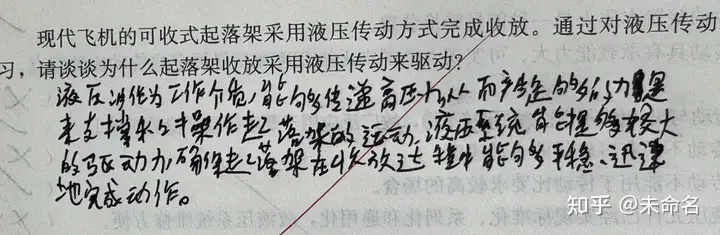 现代飞机的可收式起落架采用液压传动方式完成收放。通过对液压传动
习，请谈谈为什么起落架收放采用液压传动来驱动？
液压油作为工作介质，能够传递高压力从而产生足够的力量
来支撑和操作起落架的运动，液压系统能提够较大
的驱动力，确保起落架在收放过程中能够平稳、迅速
地完成动作。
知乎 @未命名